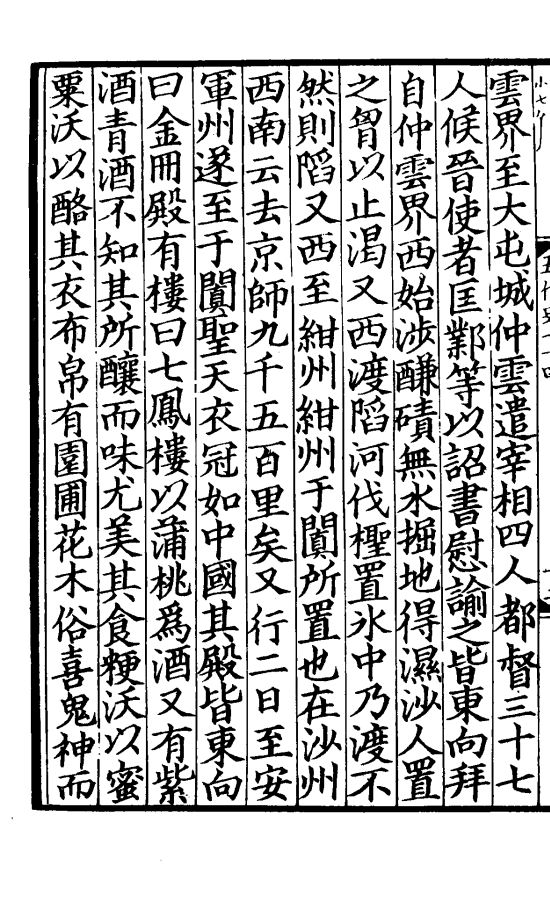 雲界至大屯城仲雲遣宰相四人都督三十七
人候晉使者匡鄴等以詔書慰諭之皆東向拜
自仲雲界西始涉醶磧無水掘地得濕沙人置
之胷以止渴又西渡陷河伐檉置氷中乃渡不
然則陷又西至紺州紺州于闐所置也在沙州
西南云去京師九千五百里矣又行二日至安
軍州遂至于闐聖天衣冠如中國其殿皆東向
曰金冊殿有樓曰七鳳樓以蒲桃爲酒又有紫
酒青酒不知其所釀而味尤美其食粳沃以蜜
粟沃以酪其衣布帛有園圃花木俗喜鬼神而